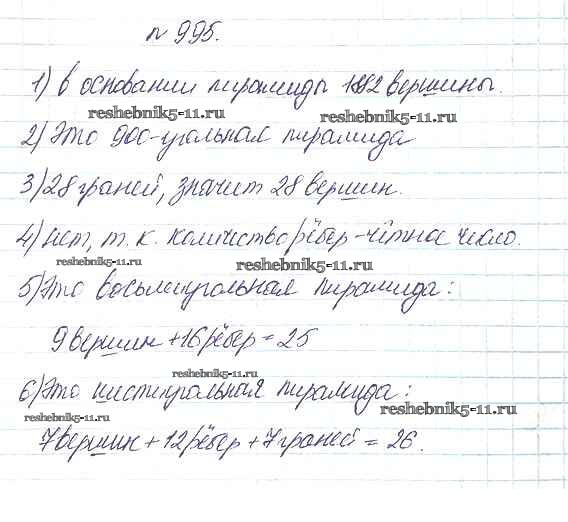 № 995.
1) В основании пирамиды 1992 вершины.
reshebnik5-11.ru reshebnik5-11.ru
2) Это 900-угольная пирамида
3) 28 граней, значит 28 вершин.
4) Нет, т. к. количество рёбер-чётное число.
reshebnik5-11.ru reshebnik5-11.ru
5) Это восьмиугольная пирамида:
9 вершин + 16 рёбер = 25
reshebnik5-11.ru
6) Это шестиугольная пирамида:
reshebnik5-11.ru reshebnik5-11.ru
7 вершин + 12 рёбер + 7 граней = 26.